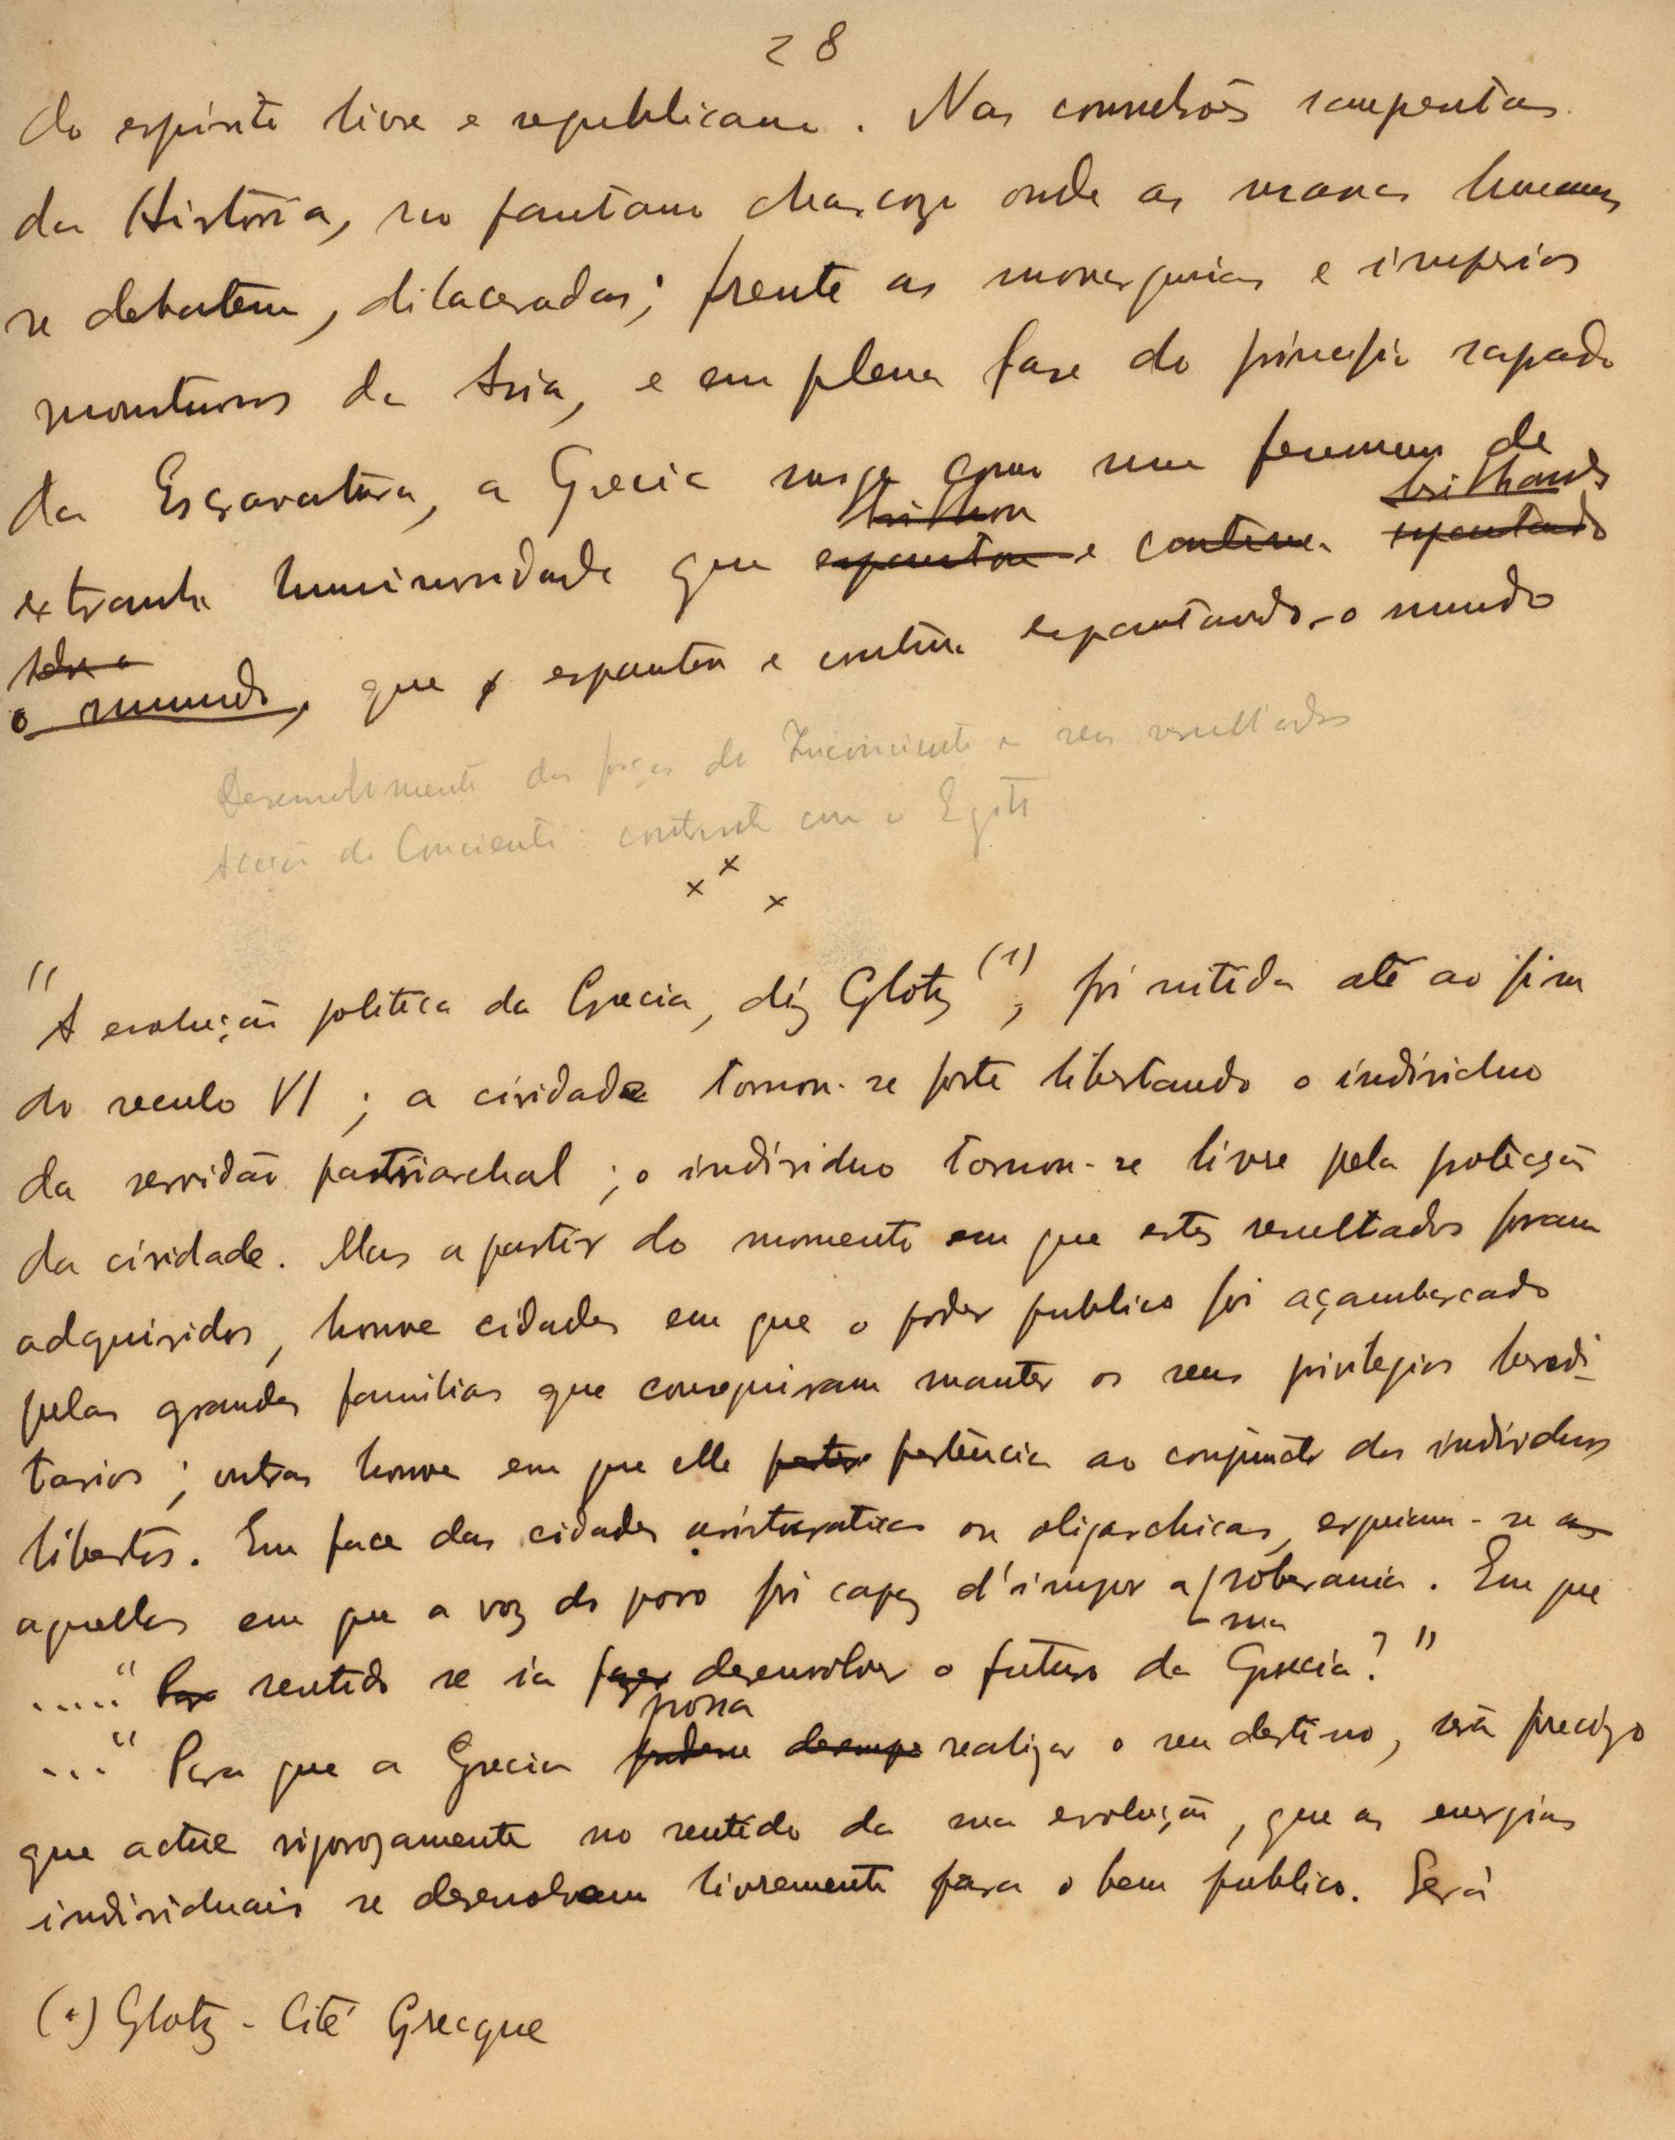 28
do espirito livre e republicano. Nas convulsões
da Historia, no pantano onde as massas humanas
se debatem, dilaceradas; frente as monarquias e imperios
monstruosos da Asia, e em plena fase do principio
da Escravatura, a Grecia surge como um fenomeno de
brilhou brilhando
extranha luminosidade que espantou e continua espantando
sobre o
o mundo, que espantou e continua espantando o mundo
Desenvolvimento das forças do Inconsciente e seus resultados
Acção do Conciente: contraste com o Egito
x x x
"A evolução politica da Grecia, diz Glotz (1), foi nitida até ao fim
do seculo VI; a cividade tornou-se forte libertando o individuo
da servidão patriarchal; o individuo tornou-se livre pela protecção
da cividade. Mas a partir do momento em que estes resultados foram
adquiridos, houve cidades em que o poder publico foi açambarcado
pelas grandes familias que conseguiram manter os seus privilegios heredi-
tarios; outras houve em que elle pertencia ao conjuncto dos individuos
libertos. Em face das cidades aristocraticas ou oligarchicas, erguiam-se as
aquellas em que a voz do povo foi capaz d'impor a soberania. Em que
sua
....." Para sentido se ia fazer desenvolver o futuro da Grecia?"
possa
..." Para que a Grecia pudesse realizar o seu destino, será precizo
que actue rigorozamente no sentido da sua evolução, que as energias
individuais se desenvolvam livremente para o bem publico. Será
(1) Glotz - Cité Grecque